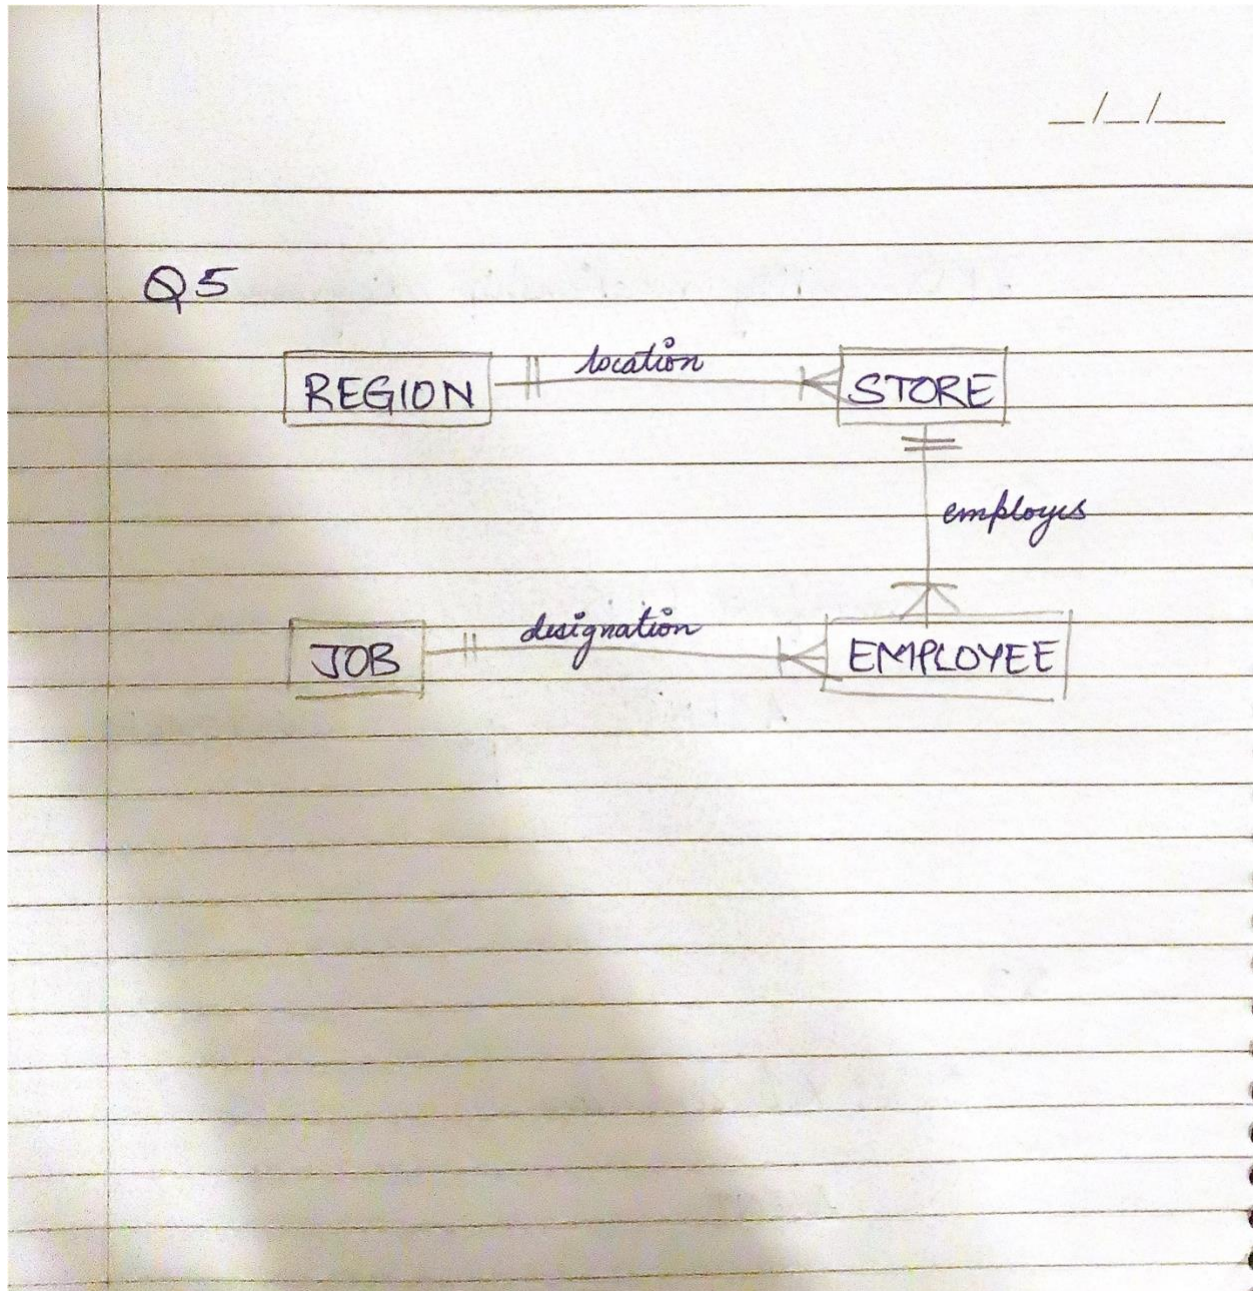 __/__/____
Q5
REGION location STORE
employes
JOB designation EMPLOYEE